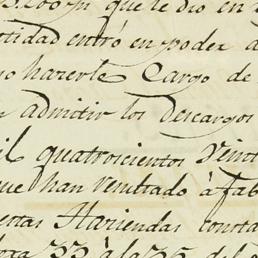 que le dio en
entró en poder
hazerle Cargo de
admitir los Descargos
quatrocientos veint
que han resultado à fab
Haziendas consta
33 à la 36 del